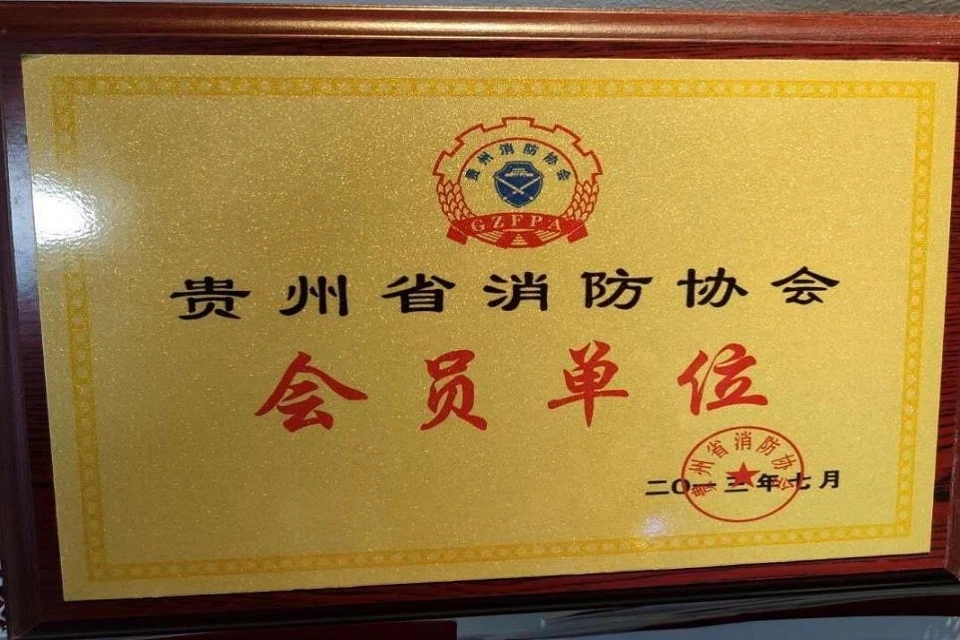 贵州消防协会
GZFPA
贵州省消防协会
会员单位
贵州省消防协会
二〇一三年七月